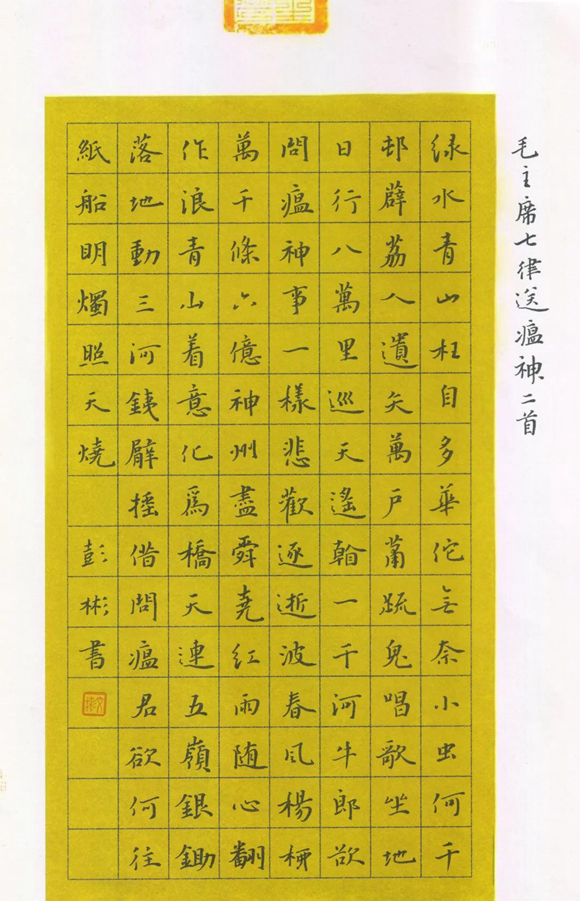 毛主席七律送瘟神二首
绿水青山枉自多華佗無奈小虫何千
邨薜荔人遺矢萬户蕭疏鬼唱歌坐地
日行八萬里巡天遙看一千河牛郎欲
問瘟神事一樣悲歡逐逝波春風楊柳
萬千條六億神州盡舜堯紅雨随心翻
作浪青山着意化為橋天連五嶺銀鋤
落地動三河銕臂摇借問瘟君欲何往
紙船明燭照天燒 彭彬書